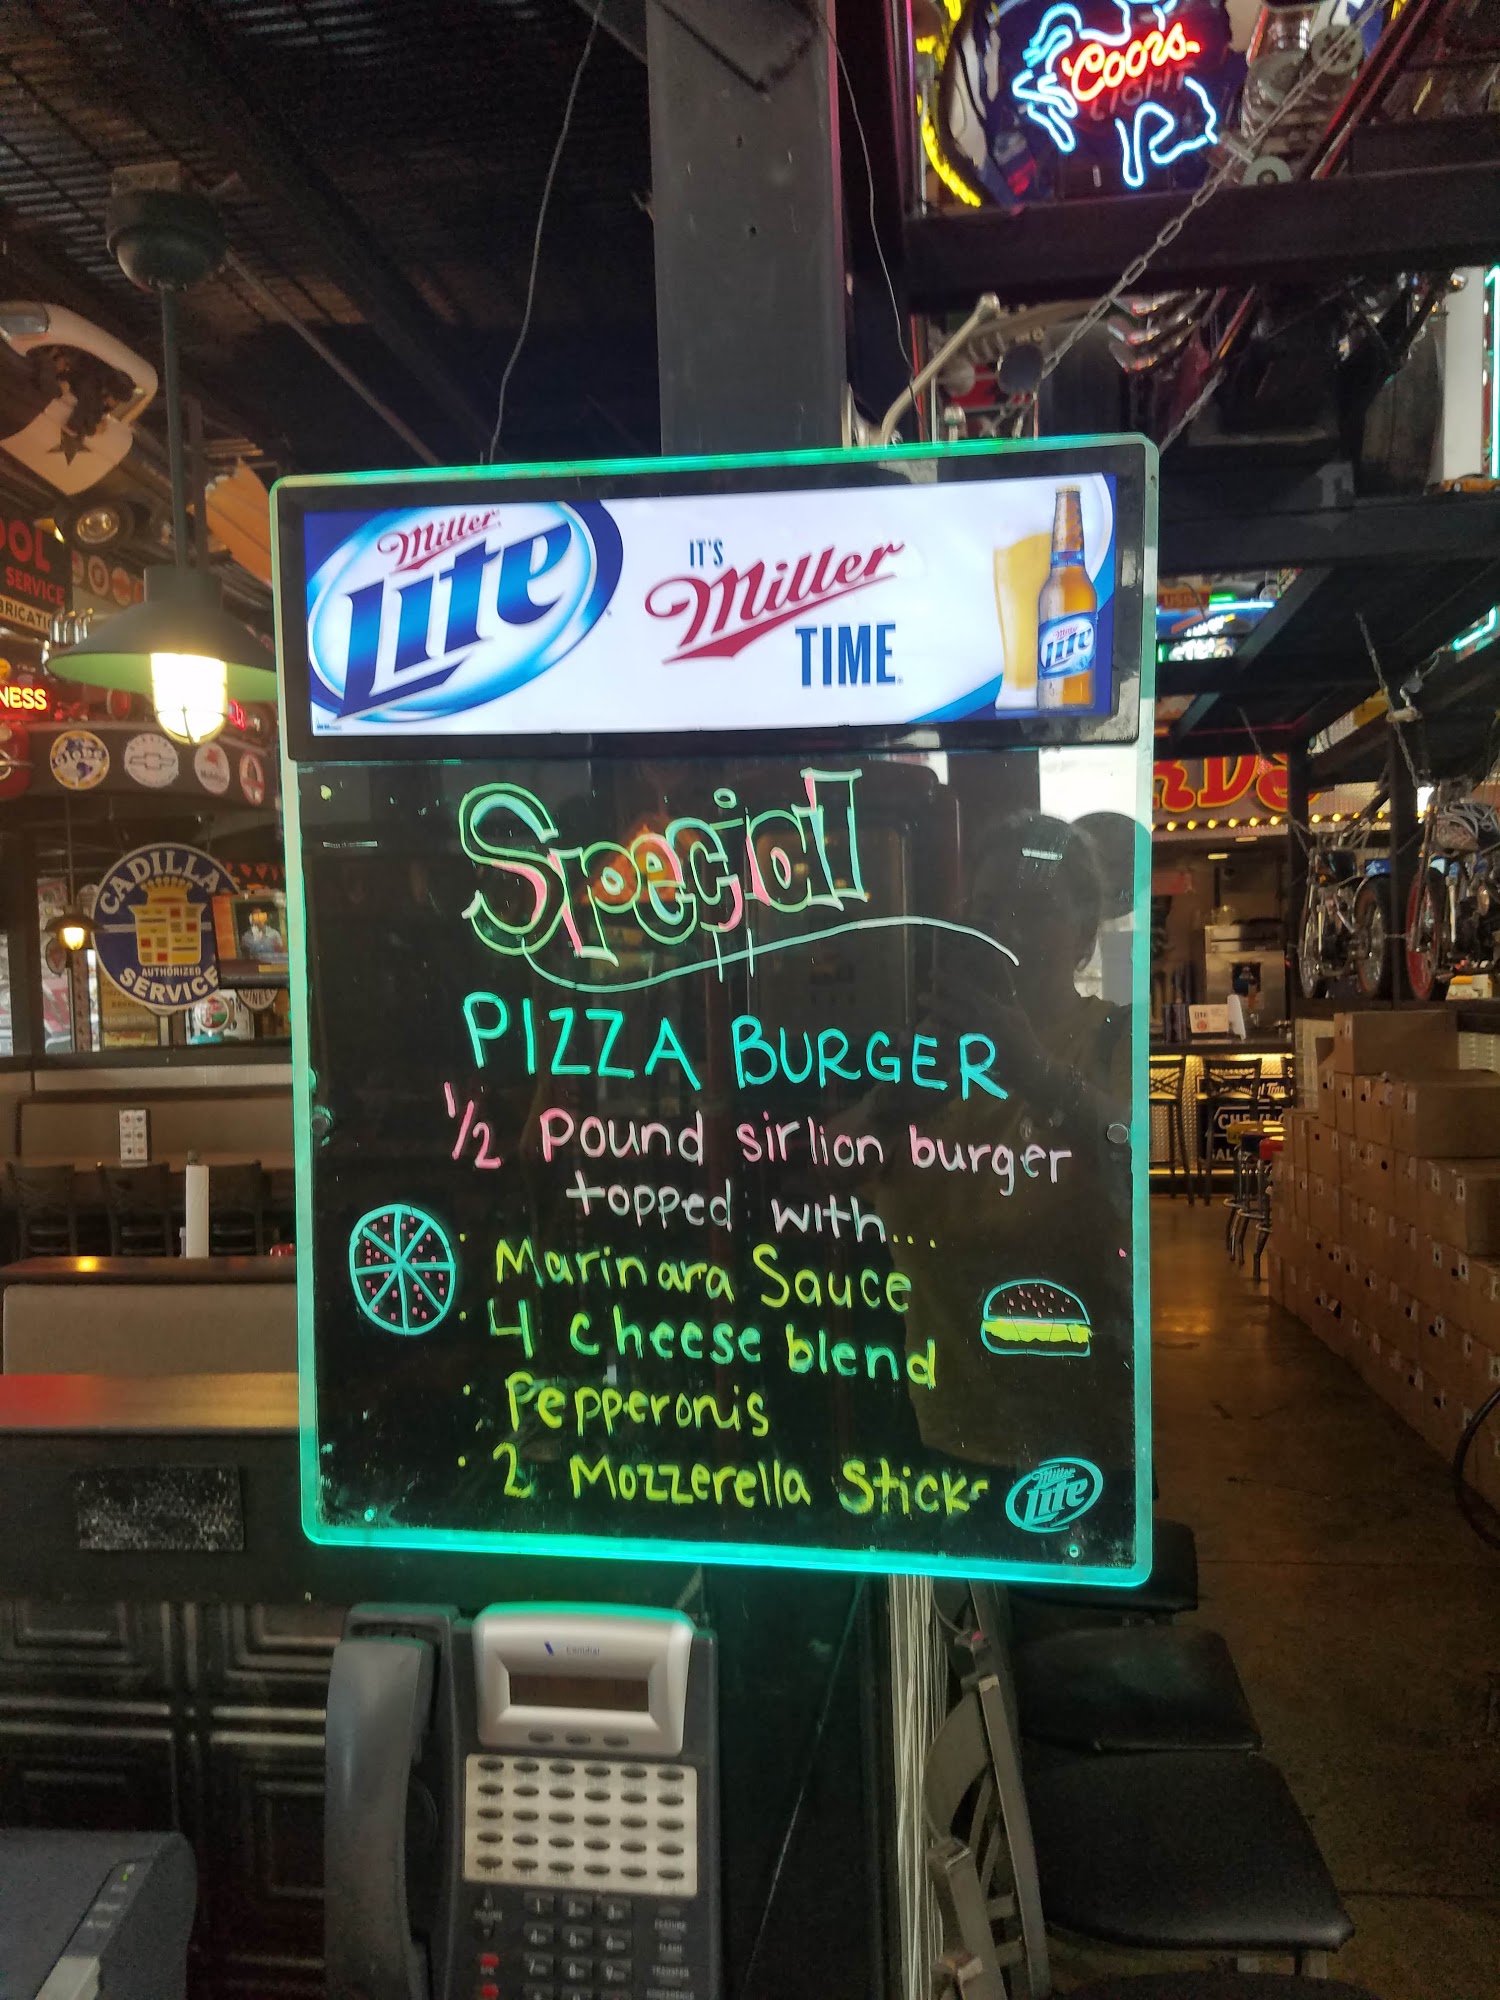 Coors
LIGHT
Miller
Lite
IT'S
Miller
TIME
Miller
Lite
OOL
SERVICE
NESS
CADILLA
AUTHORIZED
SERVICE
RDS
Special
PIZZA BURGER
1/2 pound sirlion burger
topped with...
· Marinara Sauce
· 4 cheese blend
· Pepperonis
· 2 Mozzerella Sticks
Miller
Lite